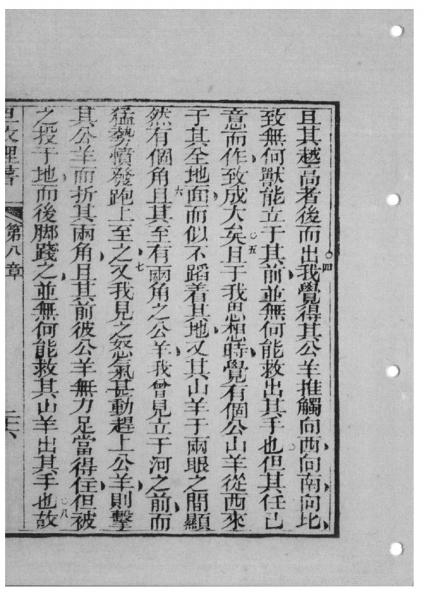 且其越高者後而出○四我覺得其公羊推觸向西向南向北
致無何獸能立于其前並無何能救出其手也但其任己
意而作致成大矣○五且于我思想時覺有個公山羊從西來
于其全地面而似不蹈着其地又其山羊于兩眼之間顯
然有個角六且其至有兩角之公羊我曾見立于河之前而
猛勢憤發跑上至之七又我見之怒氣甚動趕上公羊則擊
其公羊而折其兩角且其前彼公羊無力足當得住但被
之投于地而後脚踐之並無何能救其山羊出其手也○八故
理書 第八章